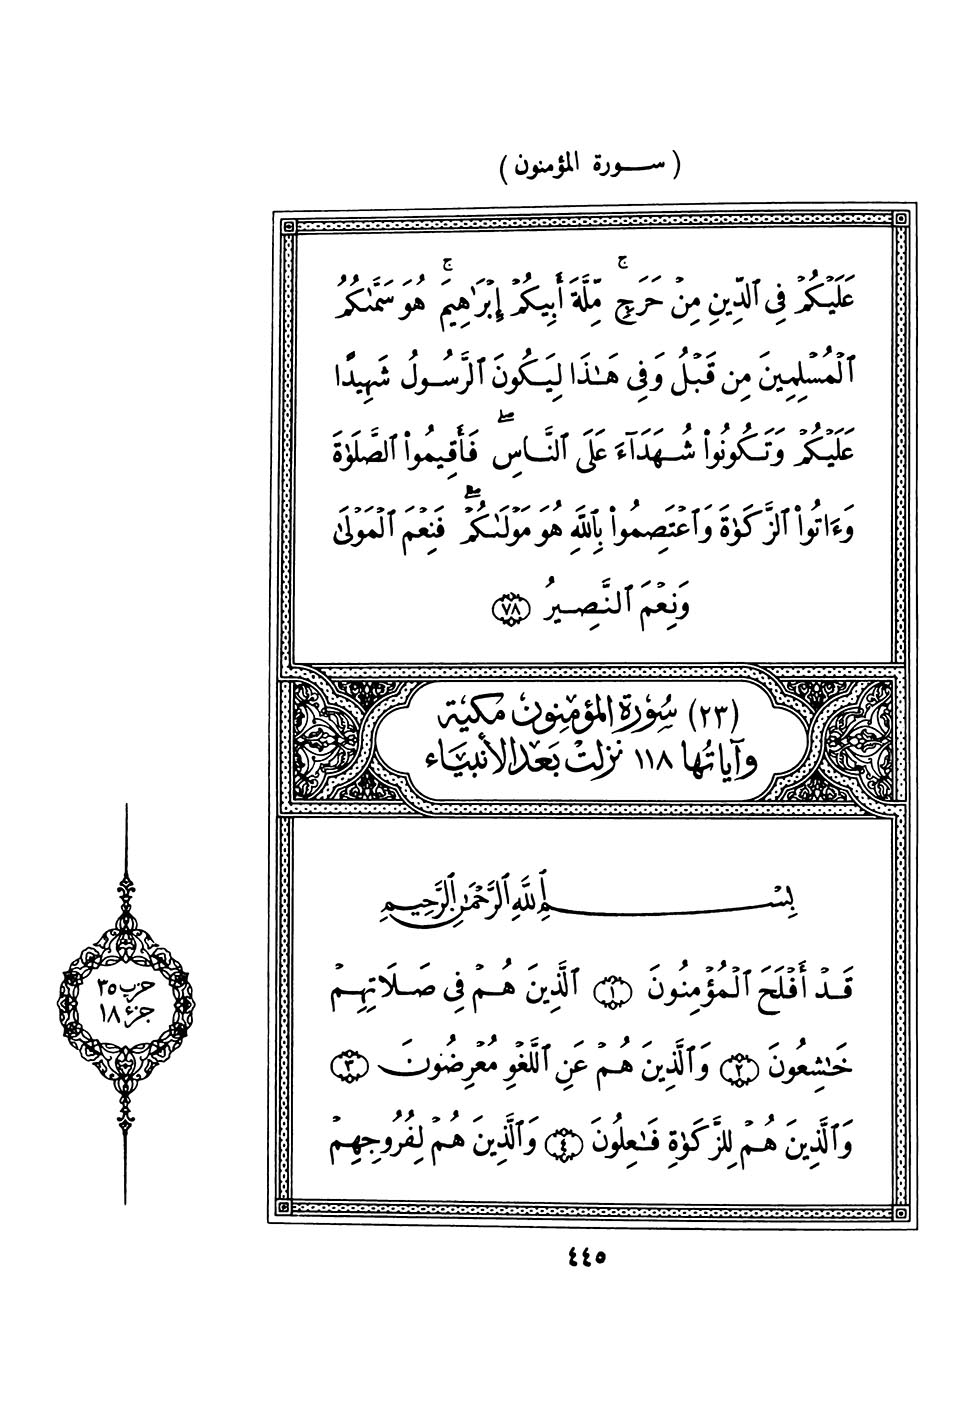 ( سـورة المؤمنون )
عَلَيْكُمْ فِى ٱلدِّينِ مِنْ حَرَجٍ ۚ مِّلَّةَ أَبِيكُمْ إِبْرَٰهِيمَ ۚ هُوَ سَمَّىٰكُمُ
ٱلْمُسْلِمِينَ مِن قَبْلُ وَفِى هَـٰذَا لِيَكُونَ ٱلرَّسُولُ شَهِيدًا
عَلَيْكُمْ وَتَكُونُوا۟ شُهَدَآءَ عَلَى ٱلنَّاسِ ۖ فَأَقِيمُوا۟ ٱلصَّلَوٰةَ
وَءَاتُوا۟ ٱلزَّكَوٰةَ وَٱعْتَصِمُوا۟ بِٱللَّهِ هُوَ مَوْلَىٰكُمْ ۖ فَنِعْمَ ٱلْمَوْلَىٰ
وَنِعْمَ ٱلنَّصِيرُ ﴿٧٨﴾
(٢٣) سُورَة المؤمنِون مكيّة
وآياتُها ١١٨ نزلت بَعد الأنبيَاء
بِسْمِ ٱللَّهِ ٱلرَّحْمَـٰنِ ٱلرَّحِيمِ
قَدْ أَفْلَحَ ٱلْمُؤْمِنُونَ ﴿١﴾ ٱلَّذِينَ هُمْ فِى صَلَاتِهِمْ
خَـٰشِعُونَ ﴿٢﴾ وَٱلَّذِينَ هُمْ عَنِ ٱللَّغْوِ مُعْرِضُونَ ﴿٣﴾
وَٱلَّذِينَ هُمْ لِلزَّكَوٰةِ فَـٰعِلُونَ ﴿٤﴾ وَٱلَّذِينَ هُمْ لِفُرُوجِهِمْ
حزب ٣٥
جزء ١٨
٤٤٥